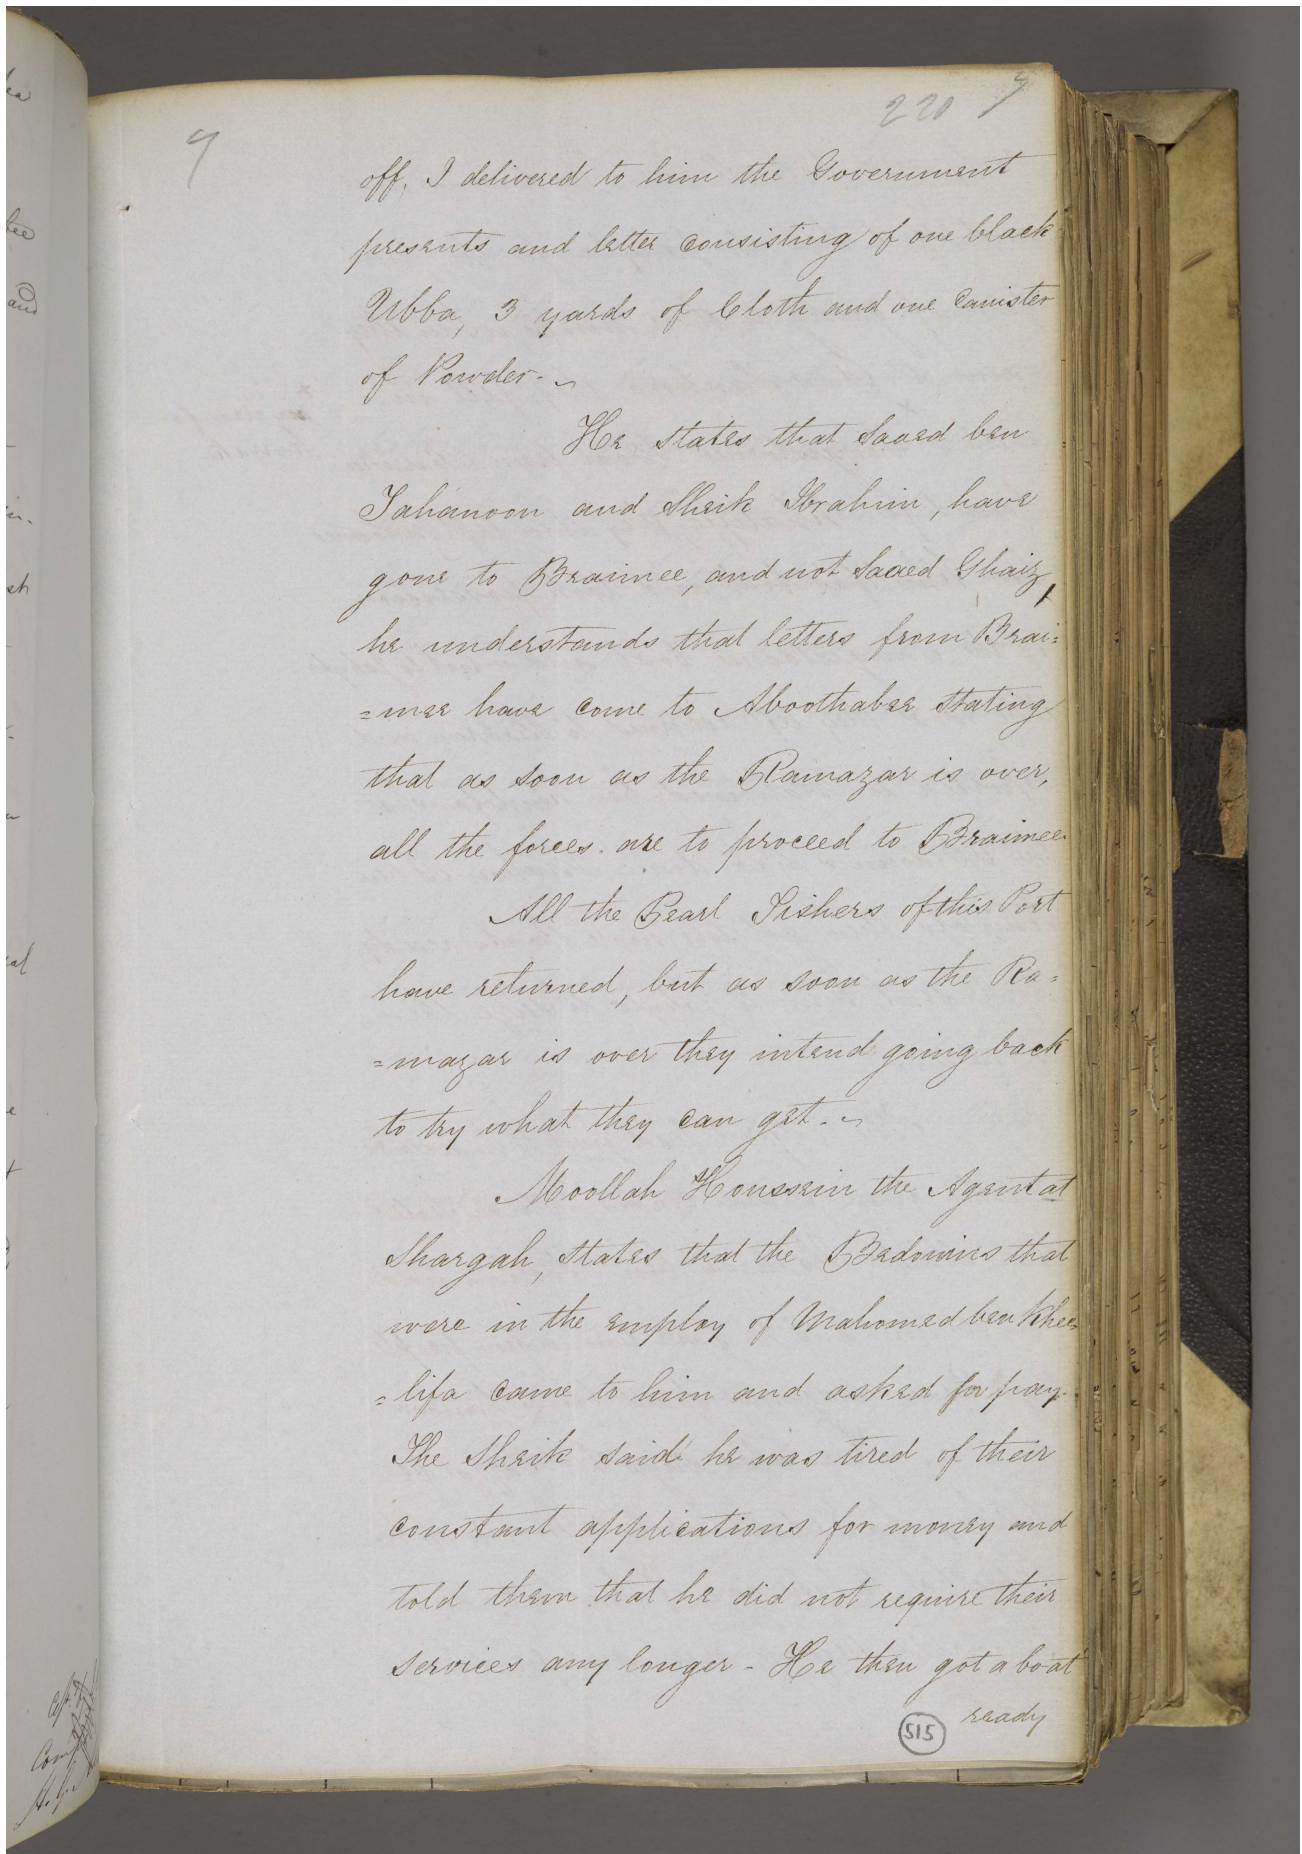 220 9
9
off, I delivered to him the Government
presents and letter consisting of one black
Ubba, 3 yards of Cloth and one Canister
of Powder.
He states that Saaed ben
Tahanoon and Sheik Ibrahim, have
gone to Braimee, and not Saaed Ghaiz,
he understands that letters from Brai=
=mee have come to Aboothabee stating
that as soon as the Ramazar is over,
all the forces are to proceed to Braimee
All the Pearl Fishers of this Port
have returned, but as soon as the Ra=
=mazar is over they intend going back
to try what they can get.
Moollah Houssein the Agent at
Shargah, states that the Bedouins that
were in the employ of Mahomed ben Khee=
=lifa came to him and asked for pay.
The Sheik said he was tired of their
constant applications for money and
told them that he did not require their
services any longer - He then got a boat
ready
515